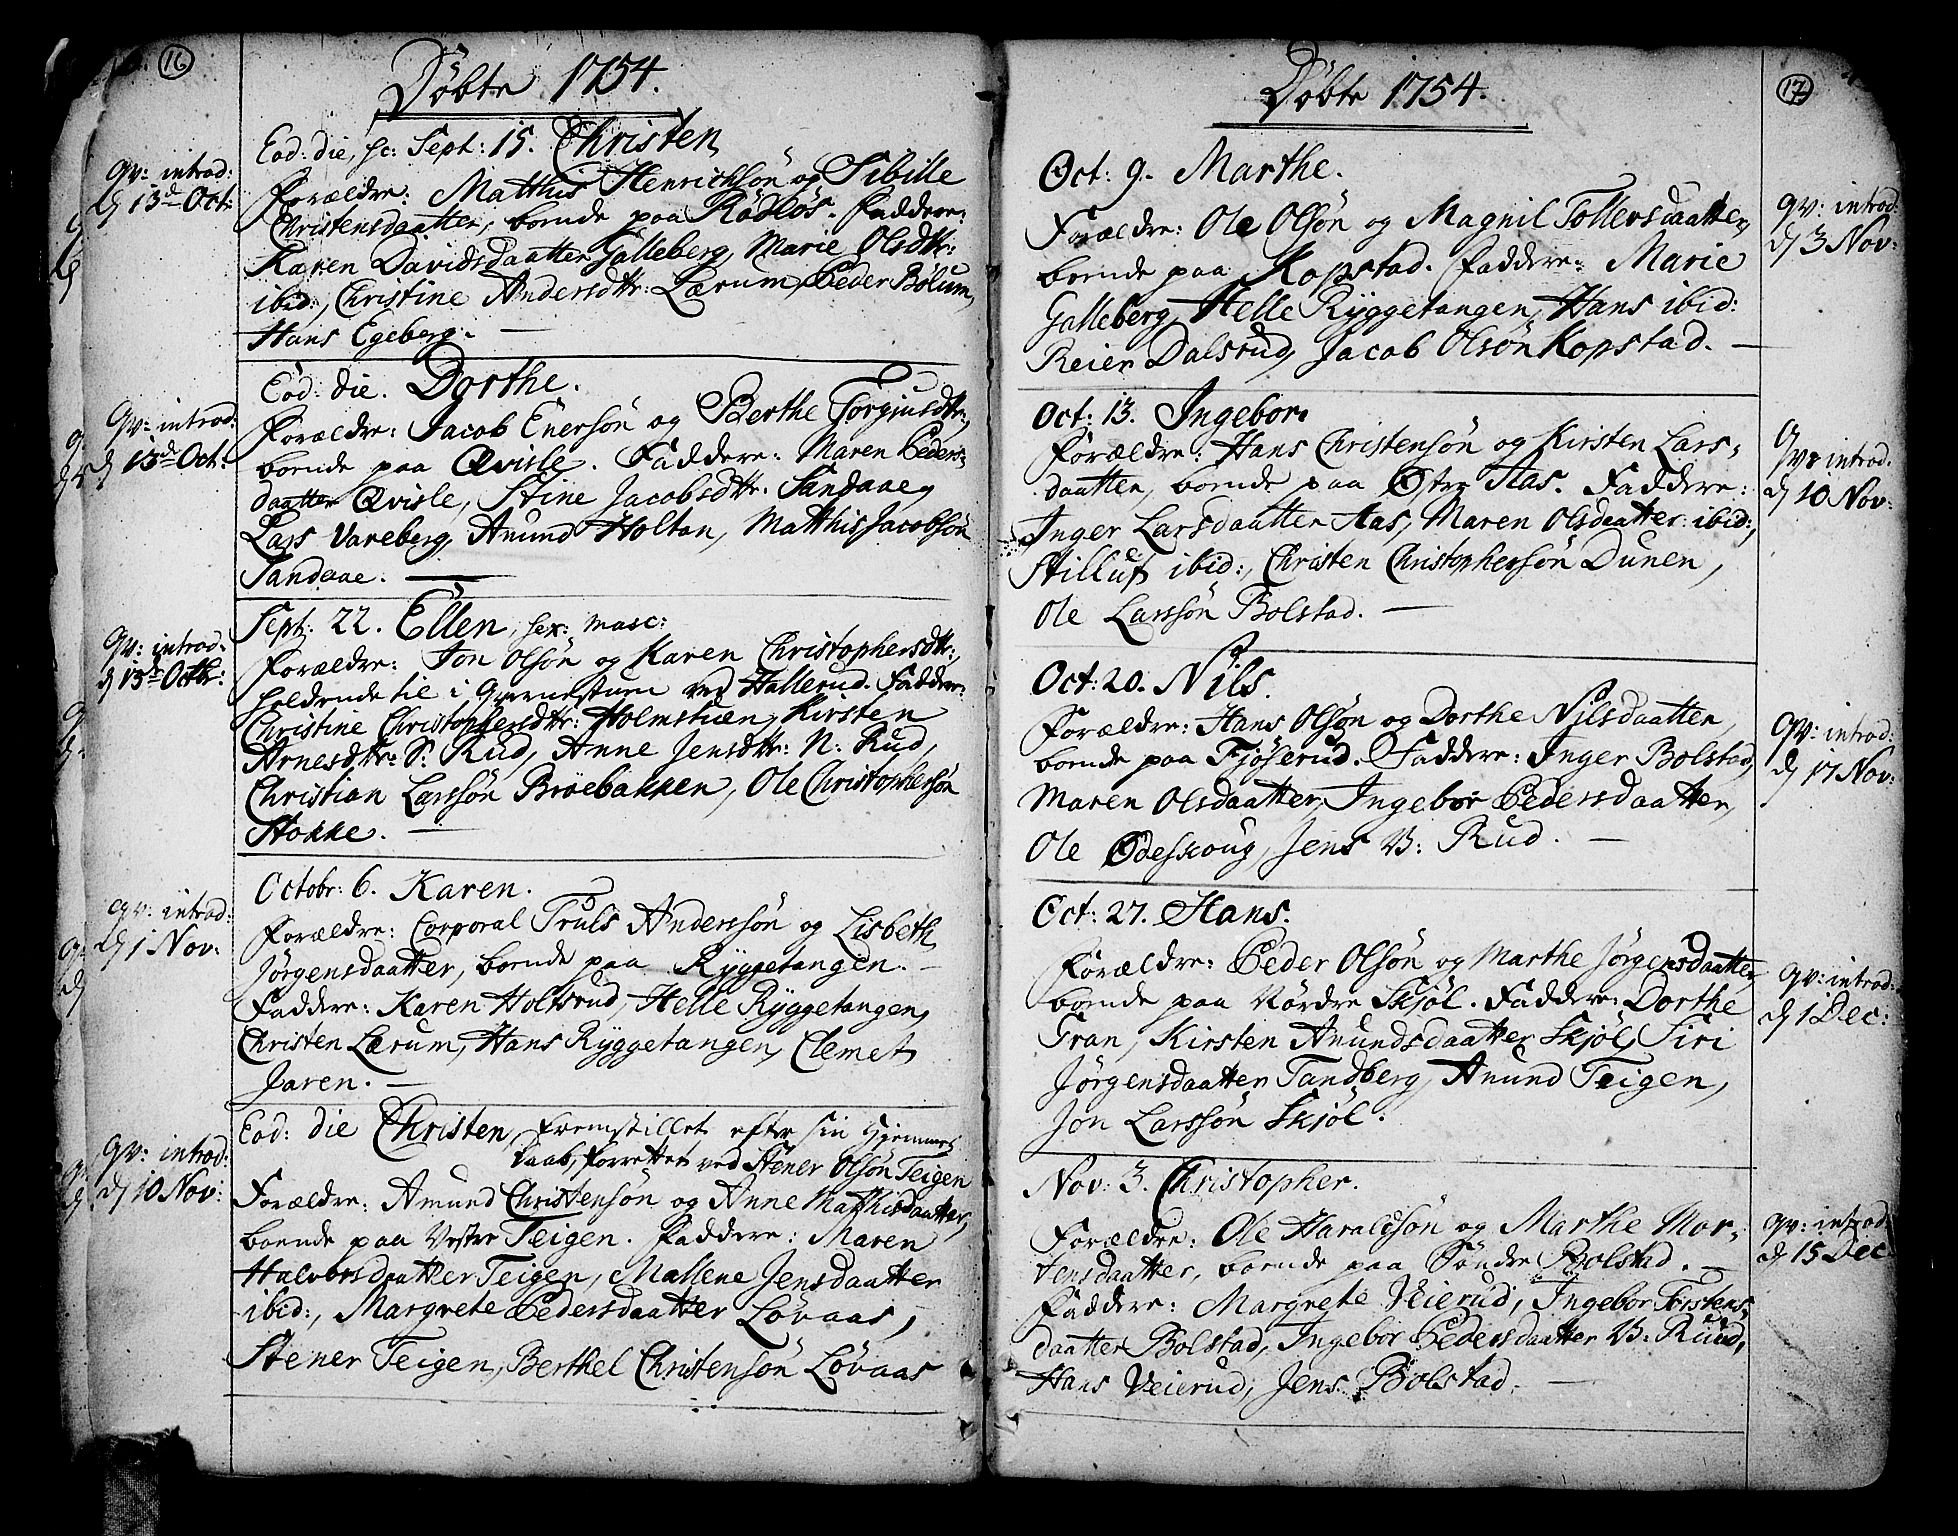 16
Döbte 1754.
Eod: die, sc: Sept: 15. Christen
qv: introd:
d 13de Oct:
Forældre: Matthis Henrichsön og Sibille
Christensdaatter, boende paa Rödkös. Faddere:
Karen Davidsdaatter Galleberg, Marie Olsdtr:
ibid:, Christine Andersdtr: Lærum, Peder Bølum,
Hans Egeberg. —
Eod: die. Dorthe.
qv: introd:
d 13de Oct:
Forældre: Jacob Enersön og Berthe Torgiusdtr:,
boende paa Qvisle. Faddere: Maren Peders-
daatter Qvisle, Stine Jacobsdtr: Sandaae,
Lars Vareberg, Anund Holtan, Matthis Jacobsön
Sandaae. —
Sept: 22. Ellen, sex: masc:
qv: introd:
d 13de Octbr:
Forældre: Jon Olsön og Karen Christophersdtr:,
holdende til i Qvernestuen ved Hallerud. Faddere:
Christine Christophersdtr: Holmstuen, Kirsten
Arnesdtr: S: Rud, Anne Jensdtr: N: Rud,
Christian Larssön Bröebakken, Ole Christophersön
Stokke. —
Octobr: 6. Karen.
qv: introd:
d 1 Nov:
Forældre: Corporal Truls Anderssön og Lisbeth
Jørgensdaatter, boende paa Ryggetangen. —
Faddere: Karen Holtsrud, Helle Ryggetangen,
Christen Lærum, Hans Ryggetangen, Clemet
Jaren. —
Eod: die Christen, fremstillet efter sin Hjemme-
Daab, forrettet ved Stener Olsön Teigen
qv: introd:
d 10 Nov:
Forældre: Amund Christensön og Anne Mathisdaatter,
boende paa Vestre Teigen. Faddere: Maren
Halvorsdaatter Teigen, Mallene Jensdaatter
ibid:, Margrete Pedersdaatter Lövaas,
Stener Teigen, Berthel Christensön Lövaas
17
Döbte 1754.
Oct: 9. Marthe.
qv: introd:
d 3 Nov:
Forældre: Ole Olsön og Magnil Tollersdaatter,
boende paa Kopstad. Faddere: Marie
Galleberg, Helle Ryggetangen, Hans ibid:
Reier Dalsrud, Jacob Olsön Kopstad. —
Oct: 13. Ingebor.
qv: introd.
d 10 Nov:
Forældre: Hans Christensön og Kirsten Lars-
daatter, boende paa Østre Aas. Faddere:
Inger Larsdaatter Aas, Maren Olsdaatter ibid:,
Stilluf ibid:, Christen Christophersön Dunen,
Ole Larssön Bolstad. —
Oct: 20. Nils.
qv: introd:
d 17 Nov:
Forældre: Hans Olsön og Dorthe Nilsdaatter,
boende paa Fjöserud. Faddere: Inger Bolstad,
Maren Olsdaatter, Ingebor Pedersdaatter,
Ole Ødeskoug, Jens V: Rud. —
Oct: 27. Hans.
qv: introd:
d 1 Dec:
Forældre: Peder Olsön og Marthe Jörgensdaatter,
boende paa Nördre Skjöl. Faddere: Dorthe
Gran, Kirsten Anundsdaatter Skjöl, Siri
Jörgensdaatter Tandberg, Anund Teigen,
Jon Larssön Skjöl.
Nov: 3. Christopher.
qv: introd:
d 15 Dec
Forældre: Ole Haraldsön og Marthe Mor-
tensdaatter, boende paa Söndre Bolstad. —
Faddere: Margrete Veierud, Ingebor Torstens
daatter Bolstad, Ingebor Pedersdaatter V: Ruud,
Hans Veierud, Jens Bolstad. —